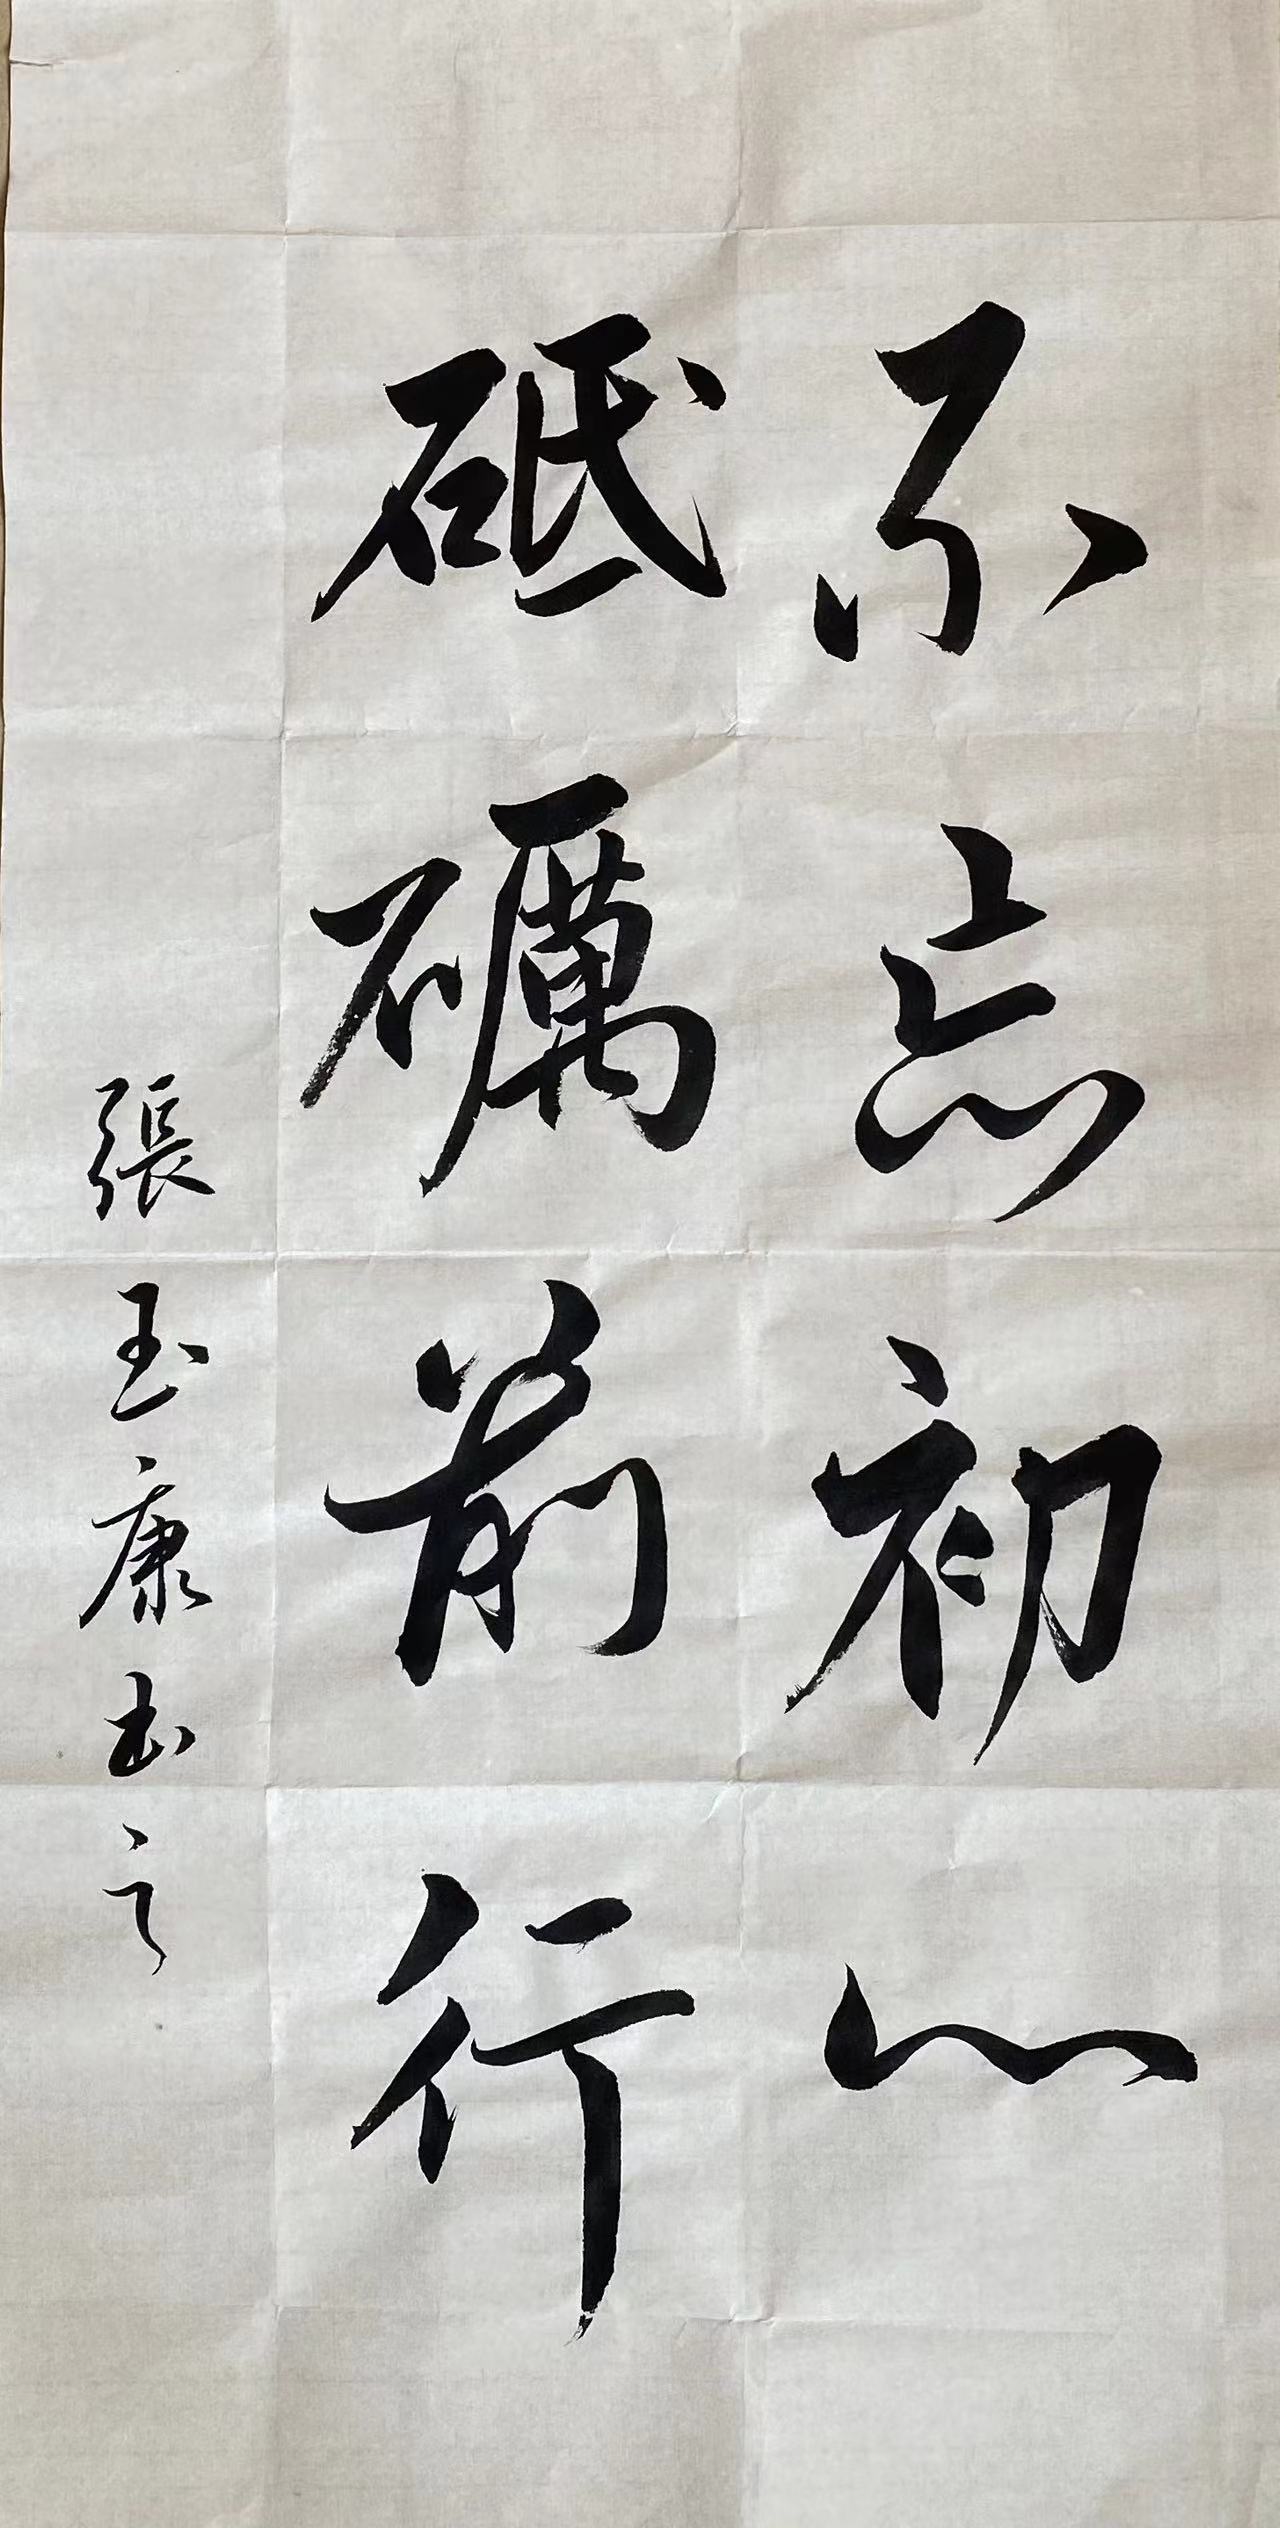 不忘初心
砥礪前行
張玉康书之